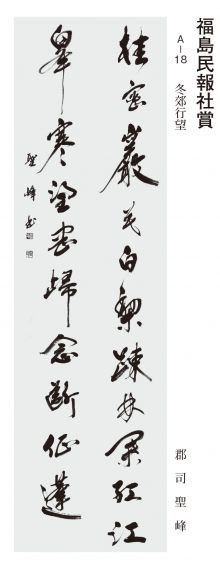 福島民報社賞
A−18 冬郊行望 郡司聖峰
桂密巖花白梨疎林葉紅江
皐寒望盡歸念斷征蓬
聖峰書